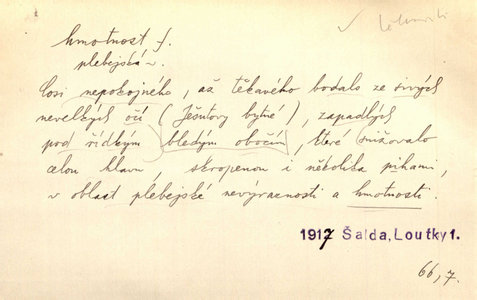 hmotnost f.
plebejská ~.
Cosi nepokojného, až těkavého bodalo ze sivých
nevelkých očí (Ješutovy bytné), zapadlých
pod řídkým bledým obočím, které snižovalo
celou hlavu, skropenou i několika pihami,
v oblast plebejské nevýraznosti a hmotnosti.
1917 Šalda, Loutky 1.
66, 7.